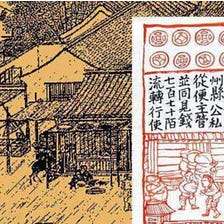 州縣公私
從便主管
並同見錢
七百七十陌
流轉行使